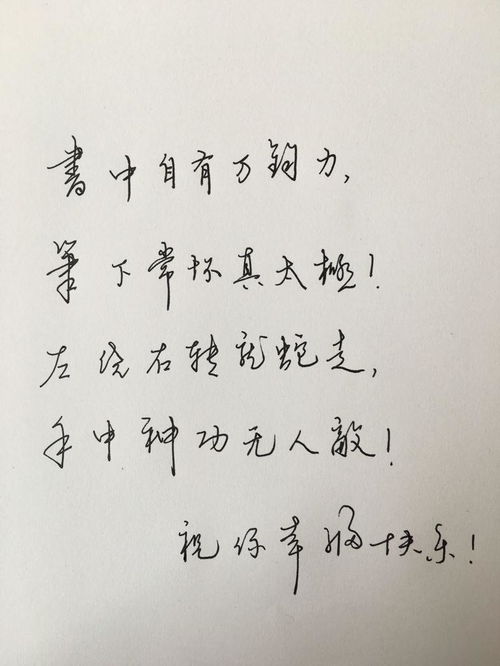 書中自有万鈞力，
筆下常怀真太極！
左绕右转龙蛇走，
手中神功无人敵！
祝你幸福快乐！